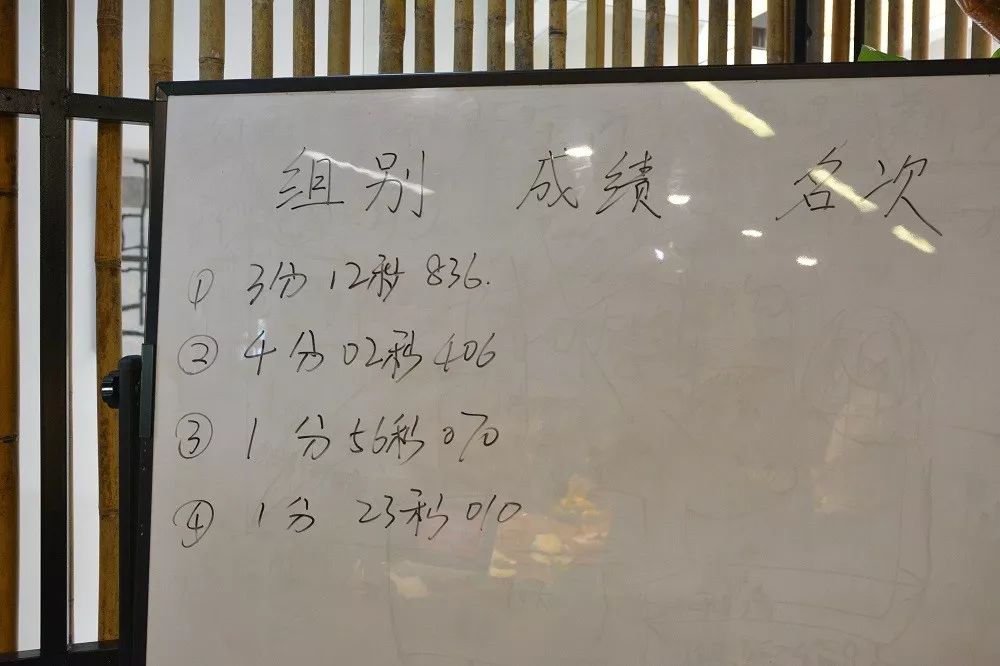 组别 成绩 名次
① 3分12秒836.
② 4分02秒406
③ 1分56秒070
④ 1分23秒010